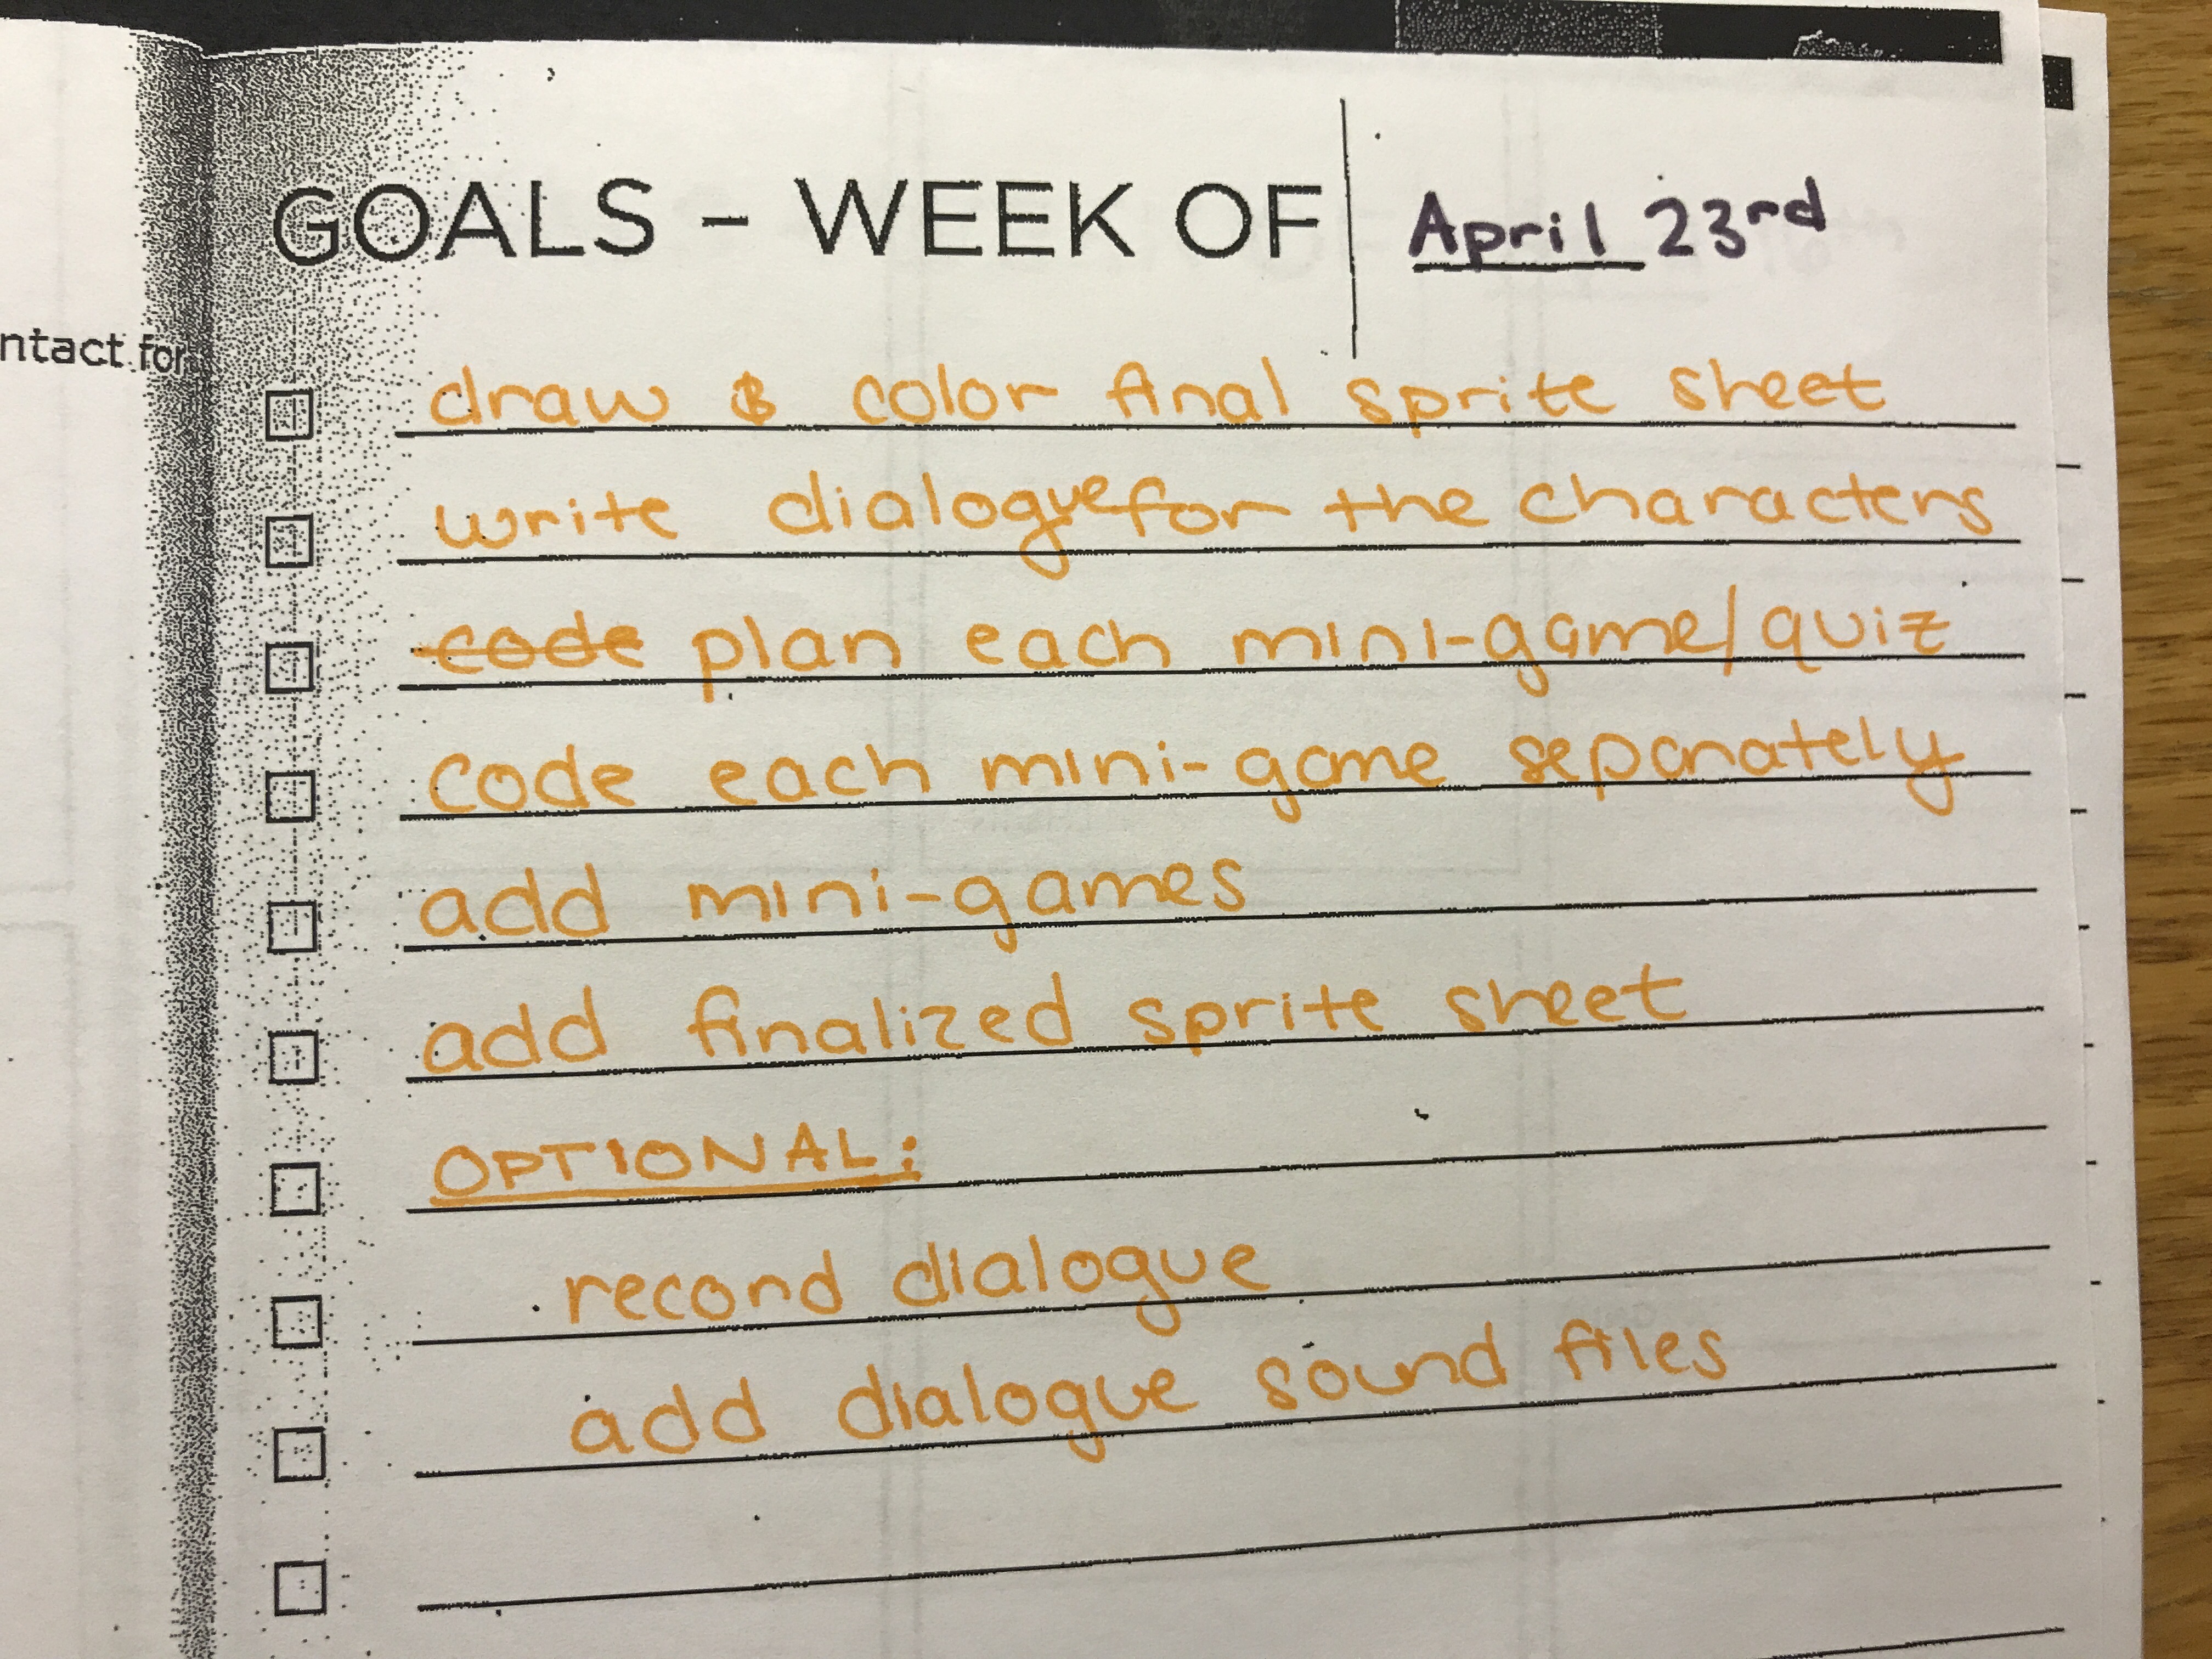 GOALS - WEEK OF April 23rd
ntact for
draw & color final sprite sheet
write dialogue for the characters
code plan each mini-game/quiz
code each mini-game separately
add mini-games
add finalized sprite sheet
OPTIONAL:
record dialogue
add dialogue sound files